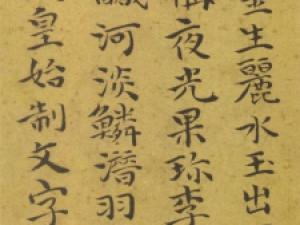 金生麗水玉出
稱夜光果珍李
鹹河淡鱗潛羽
皇始制文字